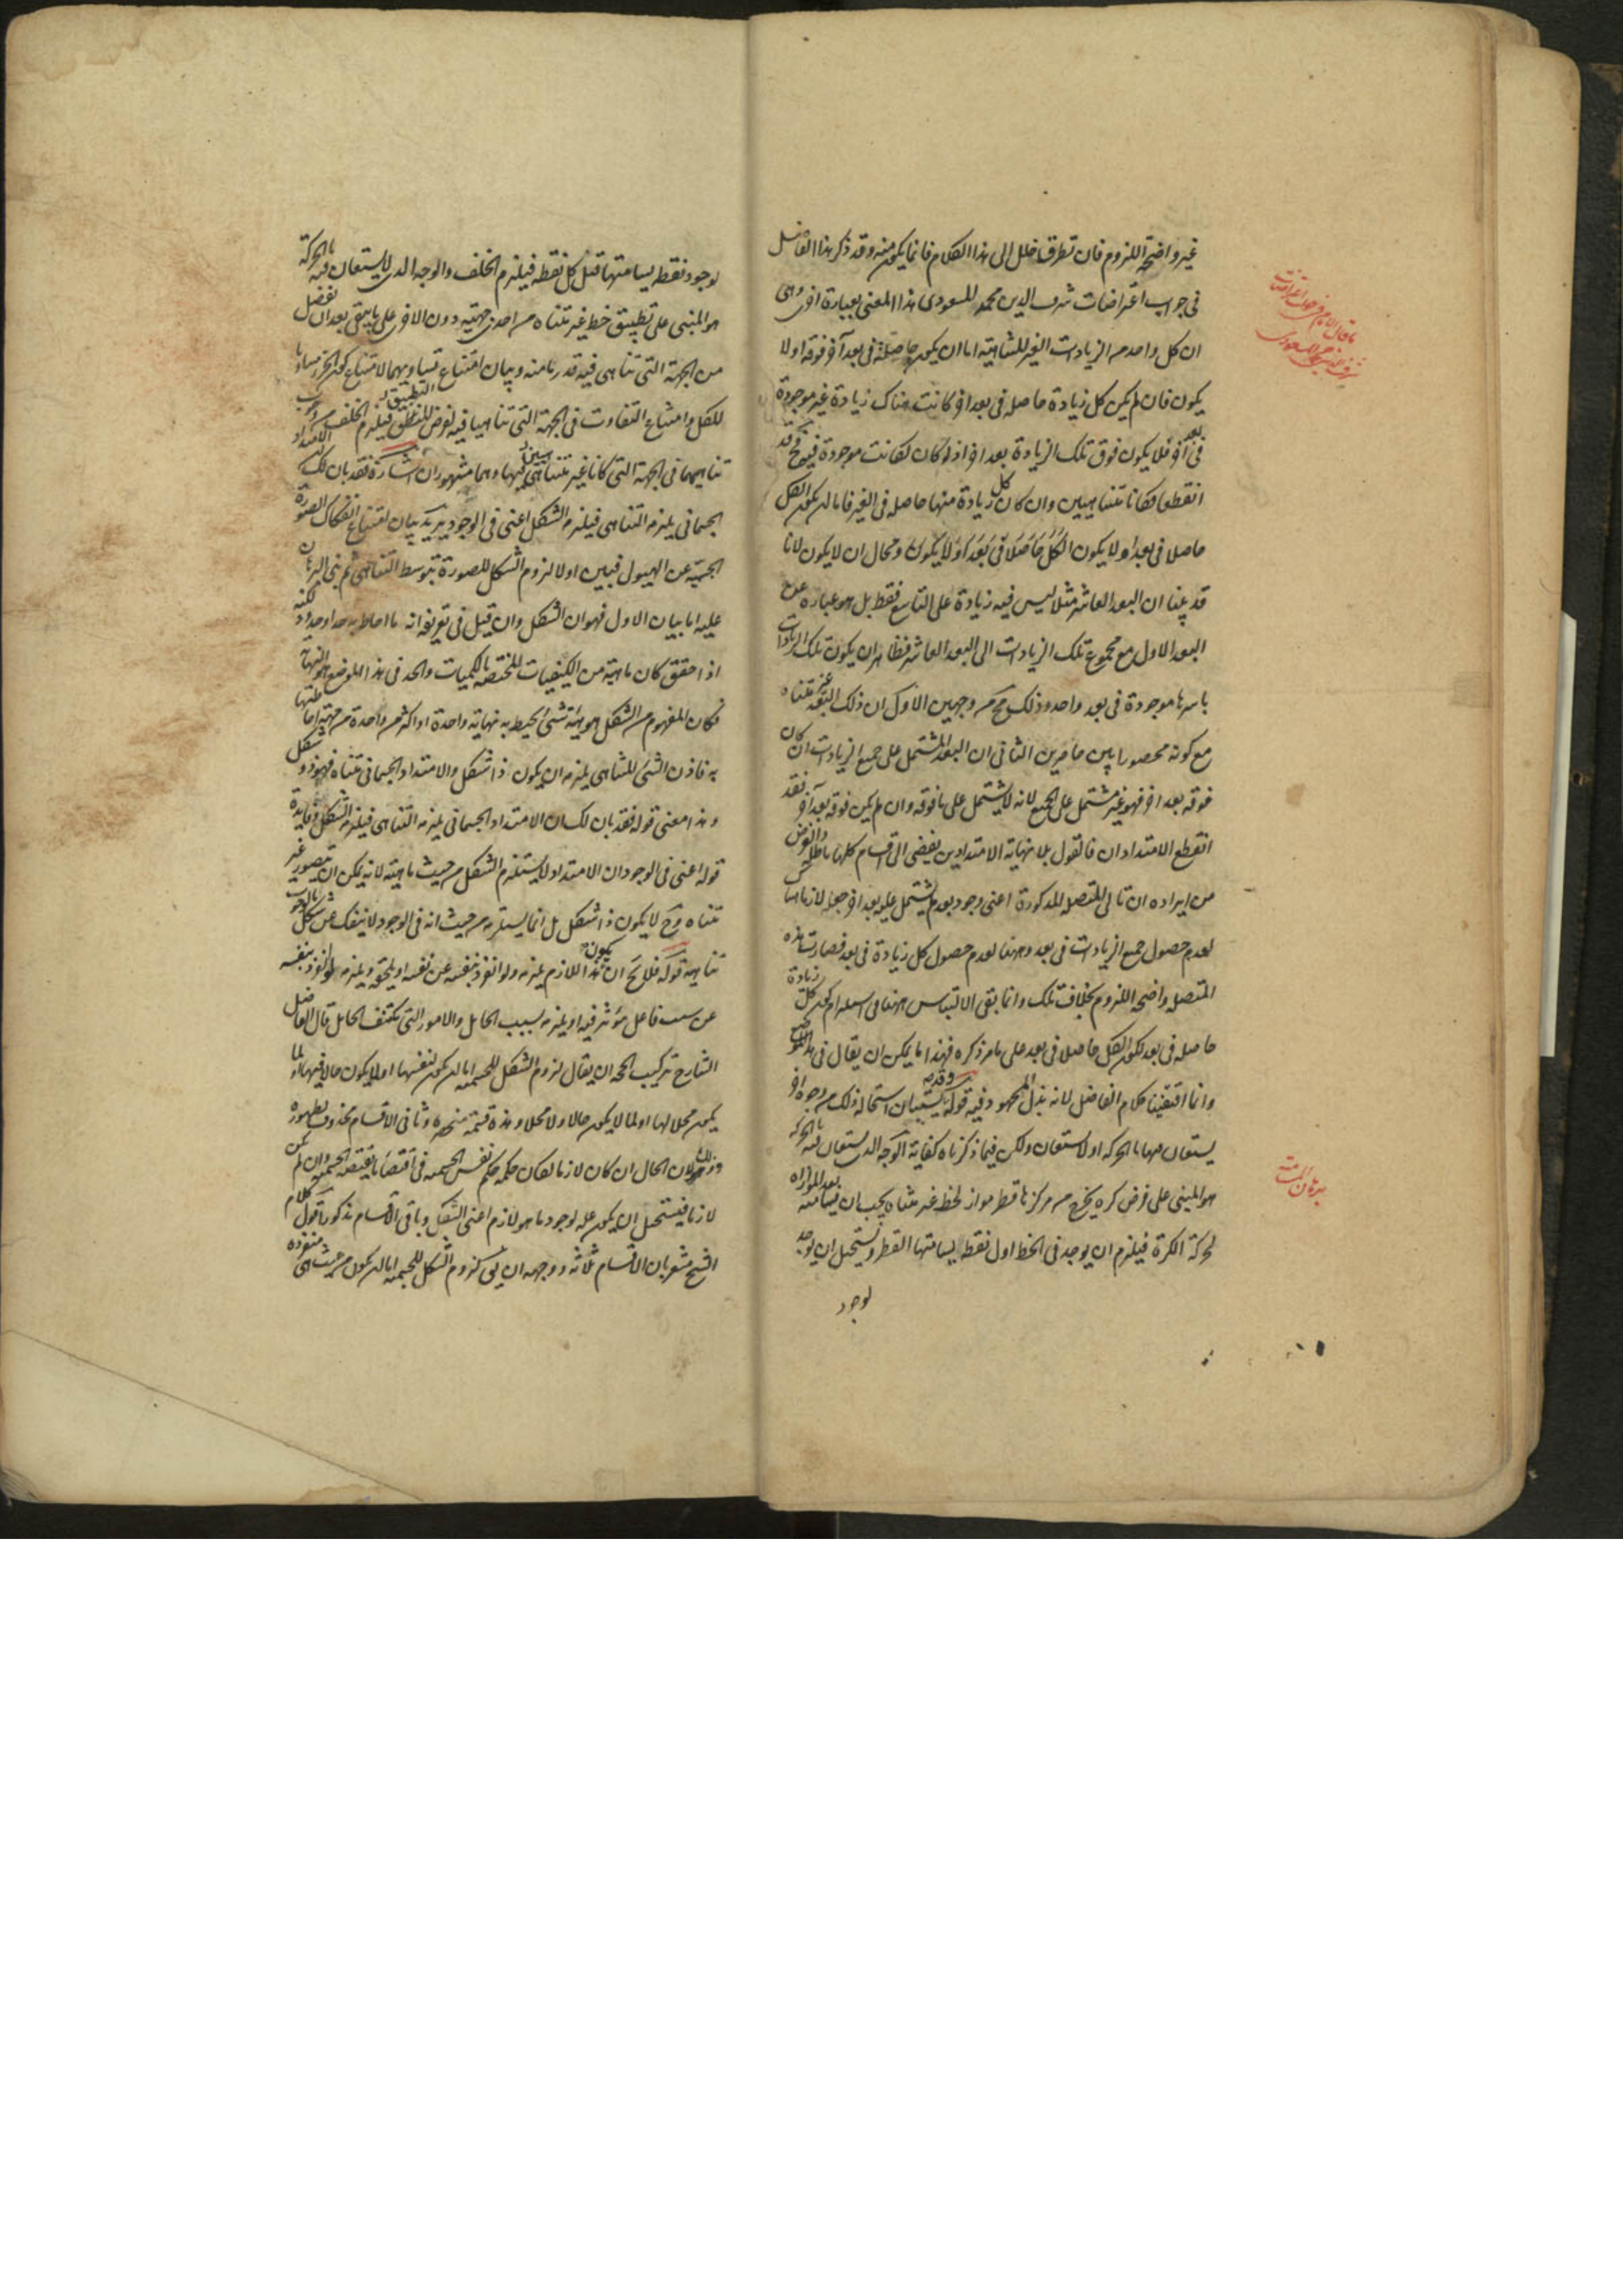 غير واضحة اللزوم فان تطرق خلل الى هذا الكلام فانما يكون منه وقد ذكر هذا الفاضل
في جواب اعتراضات شرف الدين محمد المسعودي هذا المعنى بعبارة اخرى وهي
ان كل واحد من الزيادات الغير المتناهية اما ان يكون حاصلة في بعد آخر فوقه او لا
يكون فان لم يكن كل زيادة حاصلة في بعد آخر كانت هناك زيادة غير موجودة
في بعد آخر فلا يكون فوق تلك الزيادة بعد آخر اذ لو كان لكانت موجودة فيه فح قد
انقطعا فكانا متناهيين وان كان كل زيادة منها حاصلة في الغير فاما ان يكون الكل
حاصلا في بعد او لا يكون الكل حاصلا في بعد او لا يكون ومحال ان لا يكون لانا
قد بينا ان البعد العاشر مثلا ليس فيه زيادة على التاسع فقط بل هو عبارة عن
البعد الاول مع مجموع تلك الزيادات الى البعد العاشر فظاهر ان يكون تلك الزيادات
باسرها موجودة في بعد واحد وذلك مح من وجهين الاول ان ذلك البعد غير متناه
مع كونه محصورا بين حاصرين الثاني ان البعد المشتمل على جميع الزيادات ان كان
فوقه بعد آخر فهو غير مشتمل على الجميع لانه لا يشتمل على ما فوقه وان لم يكن فوقه بعد آخر فقد
انقطع الامتدادان فالقول بلا نهاية الامتدادين يفضي الى اقسام كلها باطلة والغرض
من ايراده ان تالي المتصلة المذكورة اعني وجود بعد لم يشتمل عليه بعد آخر جعله لازما هناك
لعدم حصول جميع الزيادات في بعد وههنا لعدم حصول كل زيادة في بعد فصارت هذه
المتصلة واضحة اللزوم بخلاف تلك وانما بقي الالتباس ههنا في استلزام كون كل زيادة
حاصلة في بعد لكون الكل حاصلا في بعد على ما مر ذكره فهذا ما يمكن ان يقال في هذا الموضع
وانما اقتفينا كلام الفاضل لانه بذل المجهود فيه قوله وقد يستبان استحالة ذلك من وجوه اخر
يستعان فيها بالحركة او لا يستعان ولكن فيما ذكرناه كفاية الوجه الذي يستعان فيه بالحركة
هو المبني على فرض كرة يخرج من مركزها قطر مواز لخط غير متناه يجب ان يسامته بعد الموازاة
لحركة الكرة فيلزم ان يوجد في الخط اول نقطة يسامتها القطر ويستحيل ان يوجد
لوجود
ما قال الامام في جواب اعتراضات
شرف الدين محمد المسعودي
برهان المسامتة
لوجود نقطة يسامتها قبل كل نقطة فيلزم الخلف والوجه الذي لا يستعان فيه بالحركة
هو المبني على تطبيق خط غير متناه من احدى جهتيه دون الاخرى على ما يبقى بعد ان يفصل
من الجهة التي تناهى فيه قدر ما منه وبيان امتناع تساويهما لامتناع كون الجزء مساويا
للكل وامتناع التفاوت في الجهة التي تناهيا فيه لفرض التطبيق فيلزم الخلف من وجوب
تناهيهما في الجهة التي كانا غير متناهيين فيها وهما مشهوران اشارة فقد بان لك ان الامتداد
الجسماني يلزمه التناهي فيلزمه الشكل اعني في الوجود يريد بيان امتناع انفكاك الصورة
الجسمية عن الهيولى فبين اولا لزوم الشكل للصورة بتوسط التناهي ثم بنى البرهان
عليه اما بيان الاول فهو ان الشكل وان قيل في تعريفه انه ما احاط به حد او حدود لكنه
اذا حقق كان ماهيته من الكيفيات المختصة بالكميات والحد في هذا الموضع هو النهاية
فكان المفهوم من الشكل هو هيئة شئ يحيط به نهاية واحدة او اكثر من واحدة من جهة احاطتها
به فاذن الشئ المتناهي يلزمه ان يكون ذا شكل والامتداد الجسماني متناه فهو ذو شكل
وهذا معنى قوله فقد بان لك ان الامتداد الجسماني يلزمه التناهي فيلزمه الشكل وفايدة
قوله اعني في الوجود ان الامتداد لا يستلزم الشكل من حيث ماهيته لانه يمكن ان يتصور غير
متناه وح لا يكون ذا شكل بل انما يستلزمه من حيث انه في الوجود لا ينفك عن شكل ما لوجوب
تناهيه قوله فلا يخ ان يكون هذا اللازم يلزمه ولو انفرد بنفسه عن نفسه او يلحقه ويلزمه لو انفرد بنفسه
عن سبب فاعل مؤثر فيه او يلزمه بسبب الحامل والامور التي تكتنف الحامل قال الفاضل
الشارح تركيب الحجة ان يقال لزوم الشكل للجسمية اما ان يكون لنفسها او لما يكون حالا فيها او لما
يكون محلا لها او لما لا يكون حالا ولا محلا وهذه قسمة منحصرة وثاني الاقسام محذوف لظهوره
وذلك لان الحال ان كان لازما لكان حكمه حكم نفس الجسمية في اقتضاء ما يقتضيه الجسمية وان لم يكن
لازما فيستحيل ان يكون علة لوجود ما هو لازم اعني الشكل وباقي الاقسام مذكور اقول كلام
الشيخ مشعر بان الاقسام ثلاثة ووجهه ان يق لزوم الشكل للجسمية اما ان يكون من حيث هي منفردة